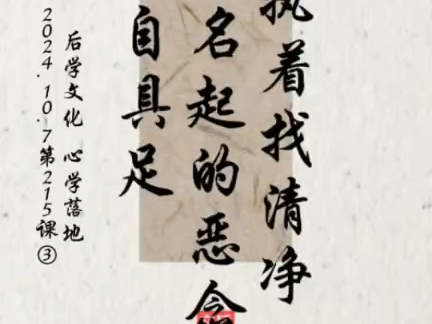 执着找清净
名起的恶念
自具足
后学文化 心学落地
2024.10.7第215课③